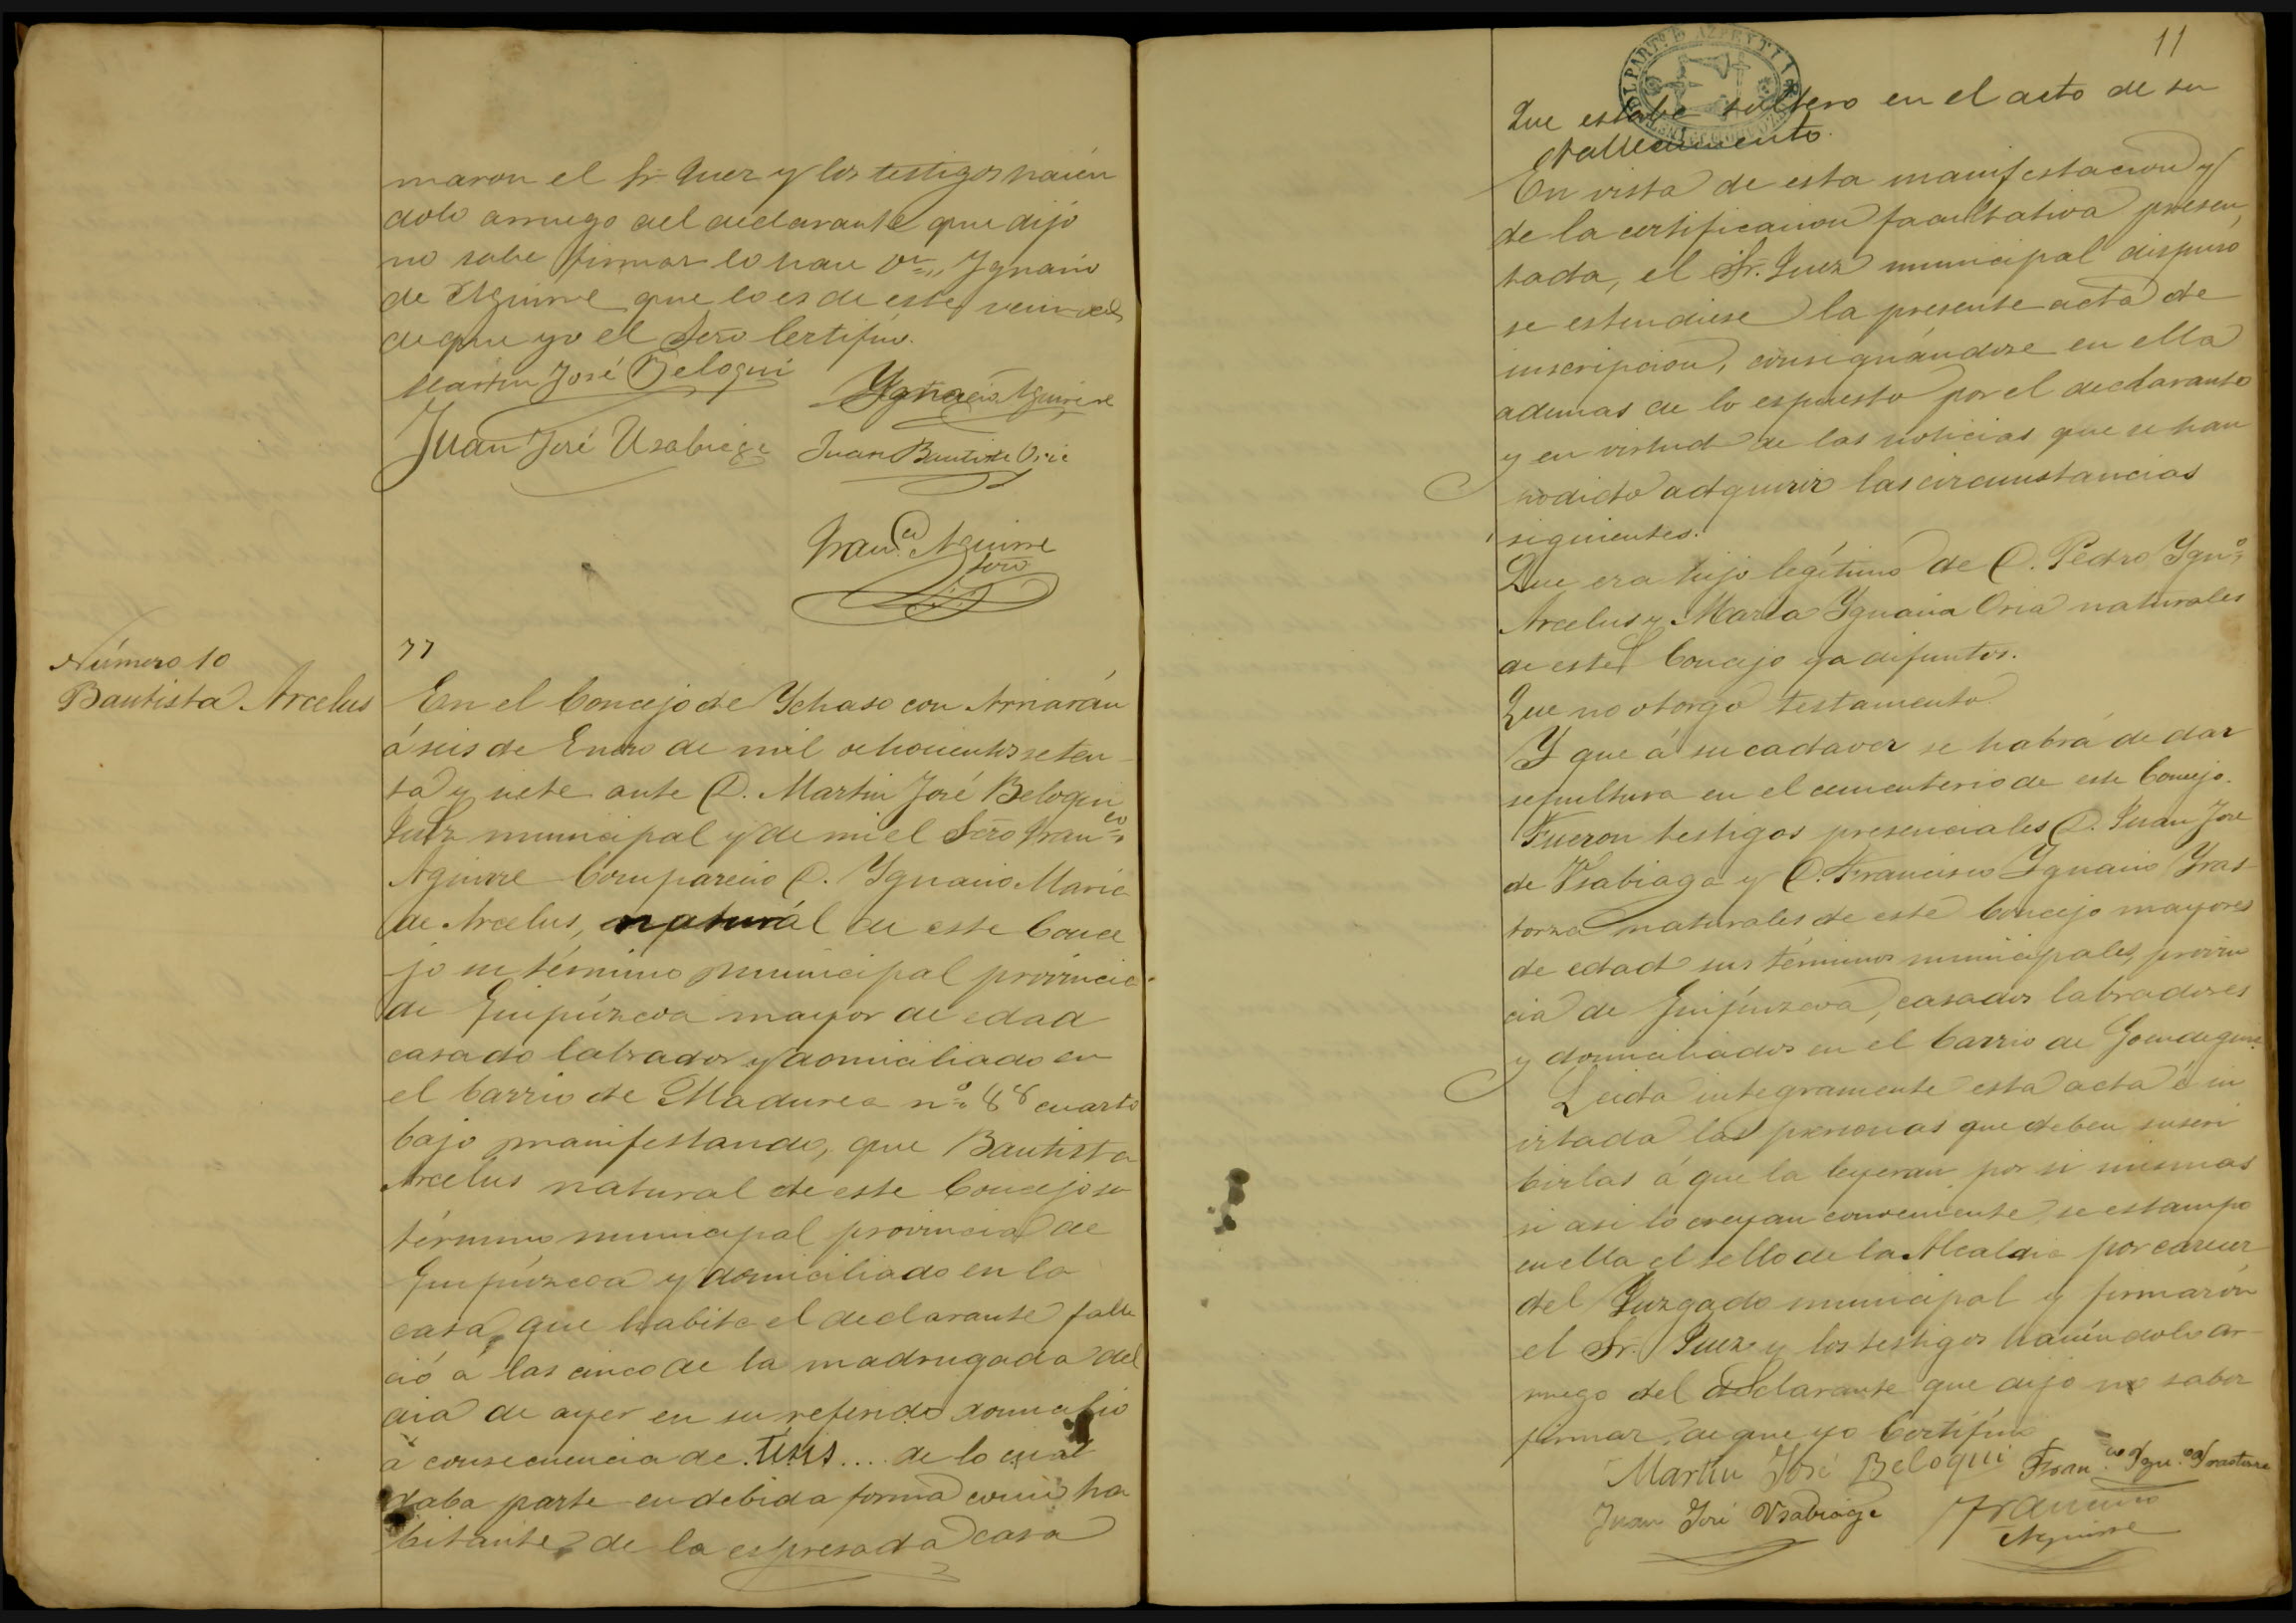 maron el Sr. Juez y los testigos hacien
dolo arruego del declarante que dijo
no sabe firmar lo hace Dn. Ygnacio
de Aguirre que lo es de este vecindad
de que yo el Srio Certifico.
Martin José Beloqui
Ygnacio Aguirre
Juan José Usabiaga
Juan Bautista Oria
Franco. Aguirre
Srio
77
Número 10
Bautista Arcelus
En el Concejo de Ychaso con Arriarán
á seis de Enero de mil ochocientos seten
ta y siete ante D. Martin José Beloqui
Juez municipal y de mi el Scrio Franco.
Aguirre Comparecio D. Ygnacio Maria
de Arcelus, natural de este Conce
jo su término municipal provincia
de Guipúzcoa mayor de edad
casado labrador y domiciliado en
el barrio de Madurea no. 88 cuarto
bajo manifestando, que Bautista
Arcelus natural de este Concejo su
término municipal provincia de
Guipúzcoa y domiciliado en la
casa que habita el declarante falle
ció á las cinco de la madrugada del
dia de ayer en su referido domicilio
á consecuencia de Tisis.... de lo cual
daba parte en debida forma como ha
bitante de la espresada casa
11
DEL PARTo. DE AZPEYTIA
Que estaba soltero en el acto de su
fallecimiento.
En vista de esta manifestacion y
de la certificacion facultativa presen
tada, el Sr. Juez municipal dispuso
se estendiese la presente acta de
inscripcion, consignándose en ella
ademas de lo espuesto por el declarante
y en virtud de las noticias que se han
podido adquirir las circunstancias
siguientes.
Que era hijo legítimo de D. Pedro Ygno.
Arcelus y Maria Ygnacia Oria naturales
de este Concejo ya difuntos.
Que no otorgó testamento.
Y que á su cadaver se habrá de dar
sepultura en el cementerio de este Concejo.
Fueron testigos presenciales D. Juan José
de Vsabiaga y D. Francisco Ygnacio Yras
torza naturales de este Concejo mayores
de edad sus términos municipales, provin
cia de Guipúzcoa, casados labradores
y domiciliados en el barrio de
Leida integramente esta acta é in
vitada las personas que deben suscri
birlas á que la leyeran por si mismas
si asi lo creyan conveniente, se estampo
en ella el sello de la Alcaldia por carecer
del Juzgado municipal y firmarón
el Sr. Juez y los testigos haciéndolo ar
ruego del declarante que dijo no saber
firmar, de que yo Certifico
Martin José Beloqui
Franco. Ygno. Yrastorza
Juan José Vsabiaga
Francisco
Aguirre